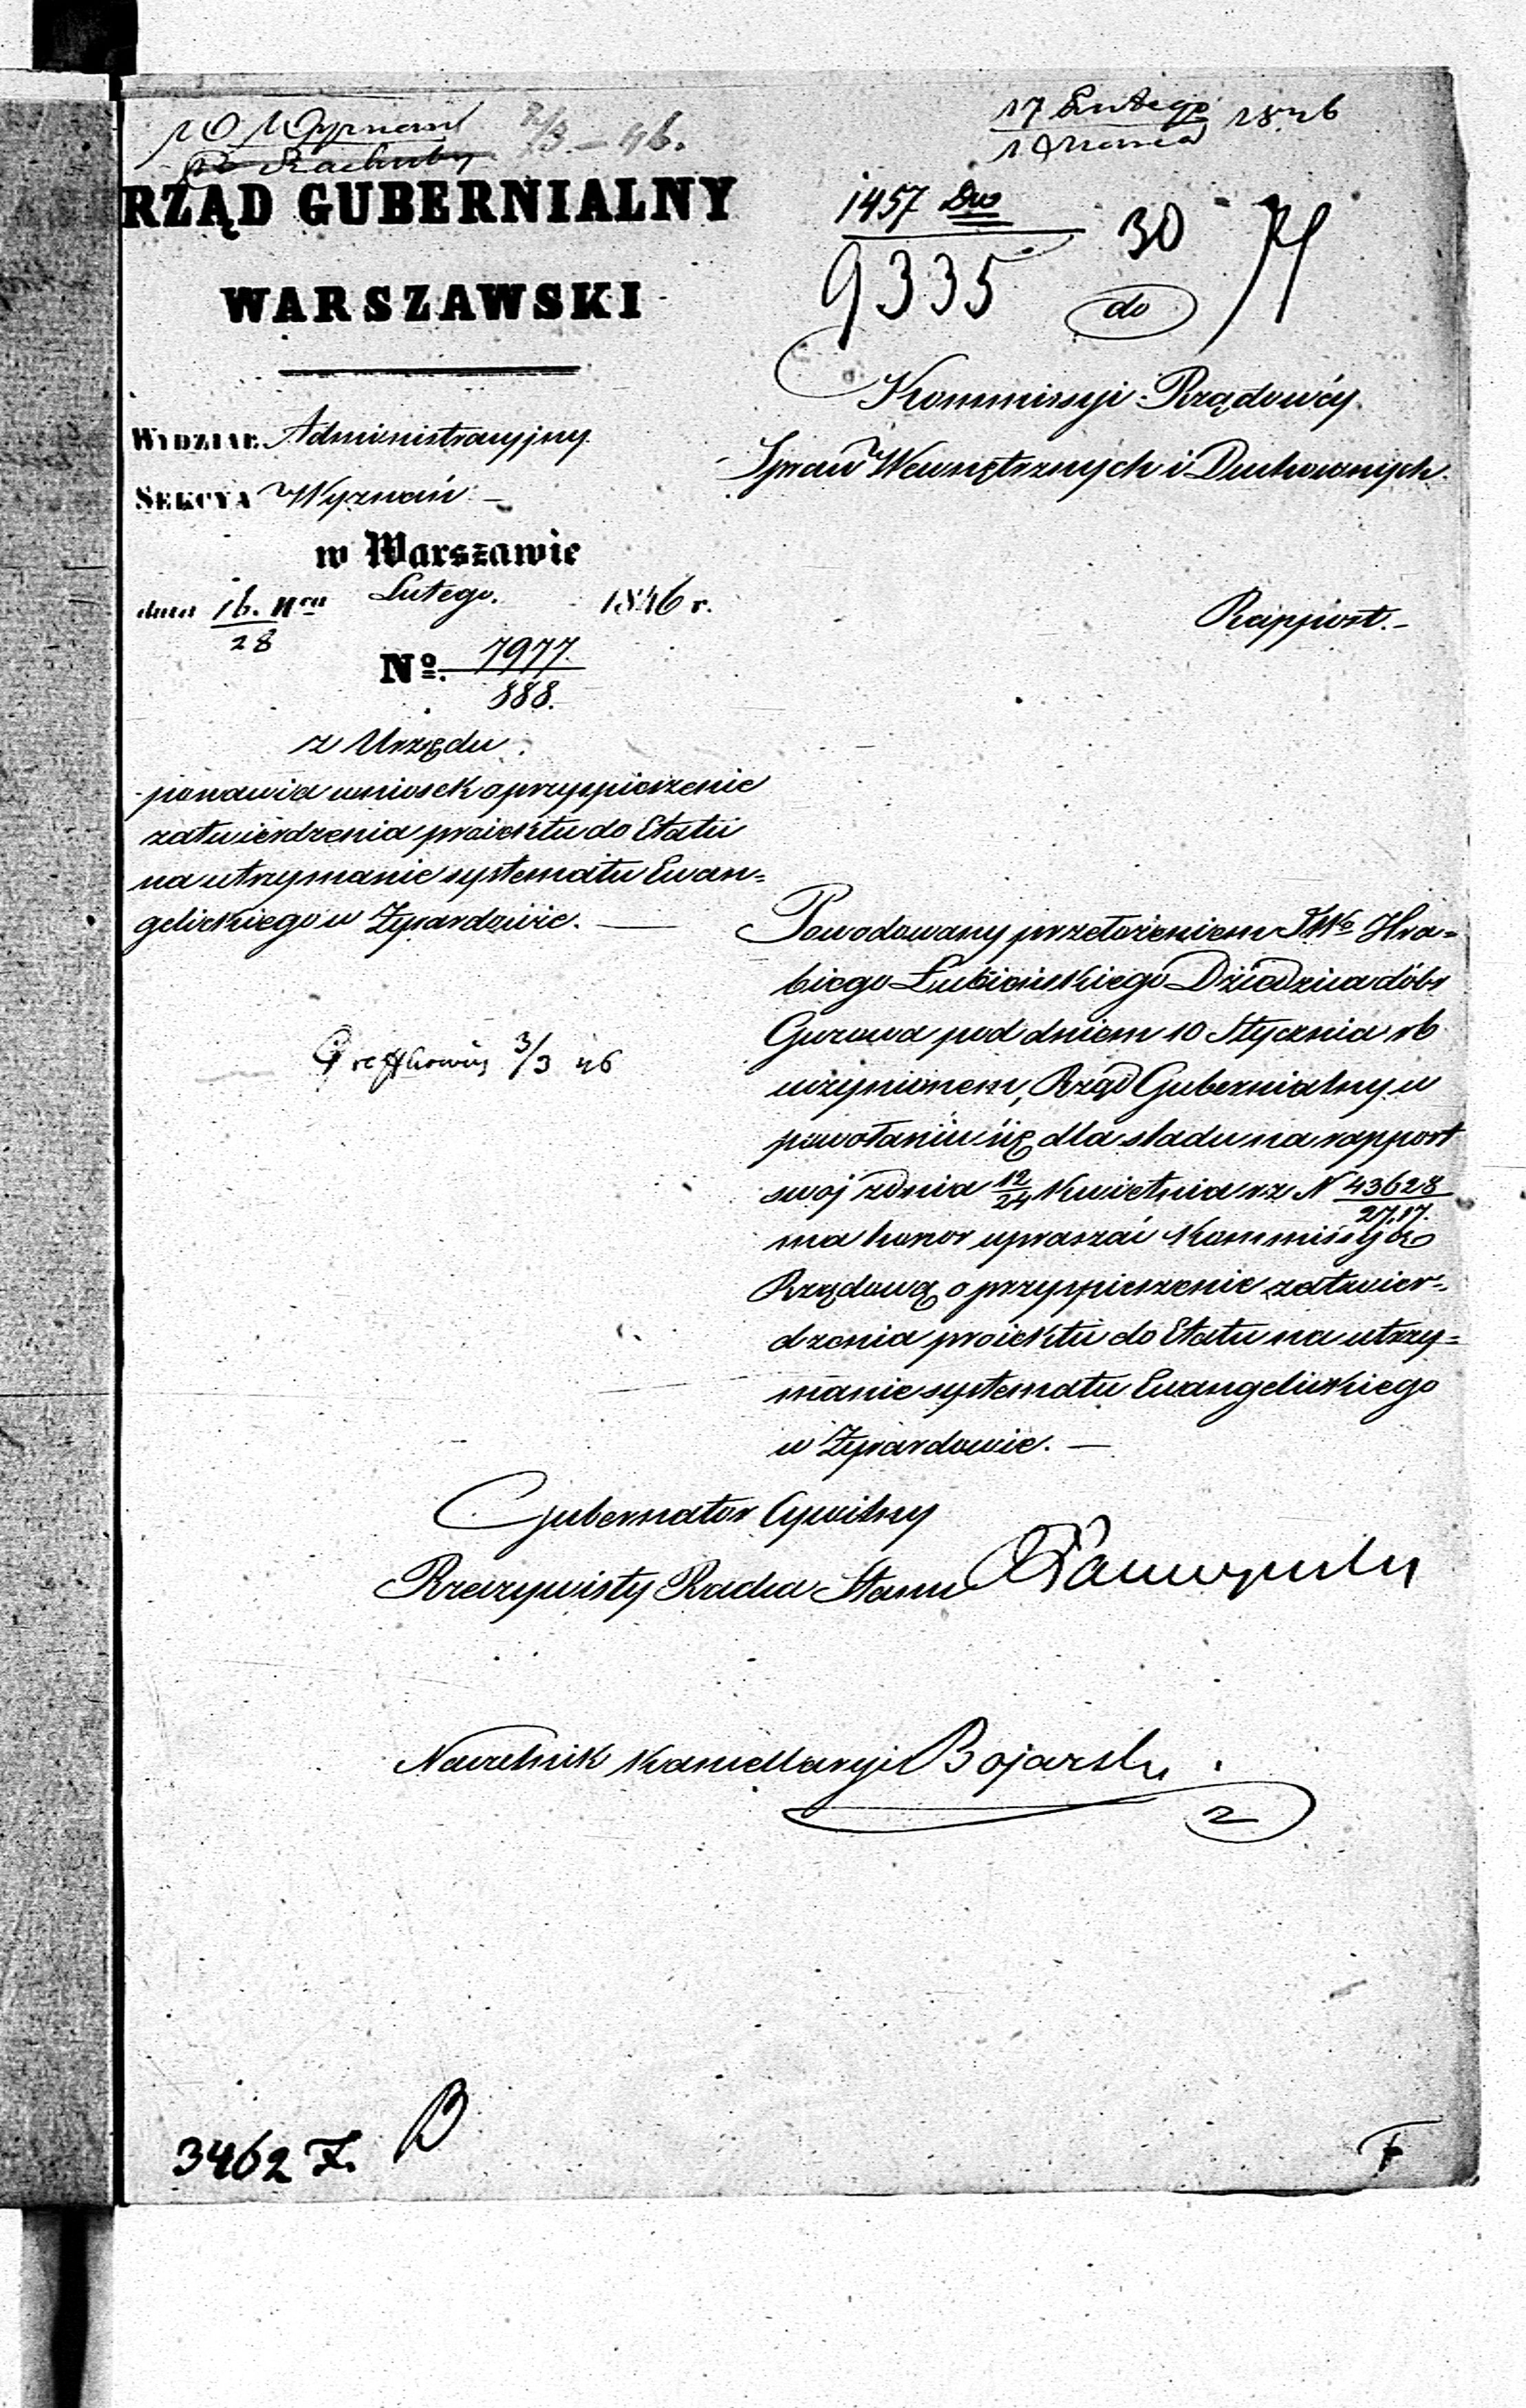 2/3 - 46.
17 Lutego 1846
1 Marca
RZĄD GUBERNIALNY
WARSZAWSKI
1457
9335
30
do
Kommissyi Rządowéy
Spraw Wewnętrznych i Duchownych
WYDZIAŁ Administracyjny
SEKCYA Wyznań
w Warszawie
dnia 16/28 Lutego 1846 r.
Nº 7977
888.
Rapport.
z Urzędu
ponawia wniosek o przyspieszenie
zatwierdzenia proiektu do Etatu
na utrzymanie systematu Ewan=
gelickiego w Żyrardowie. —
Powodowany przełożeniem JWo Hra=
biego Łubieńskiego Dziedzica dóbr
Guzowa pod dniem 10 Stycznia rb
uczynionem, Rząd Gubernialny w
powołaniu się dla śladu na rapport
swój z dnia 12/24 Kwietnia rz N 43628
2717.
ma honor upraszać Kommissyą
Rządową o przyspieszenie zatwier=
dzenia proiektu do Etatu na utrzy=
manie systematu Ewangelickiego
w Żyrardowie. —
3/3 46
Gubernator Cywilny
Rzeczywisty Radca Stanu
Naczelnik Kancellaryi Bojarski
3462 Z. B